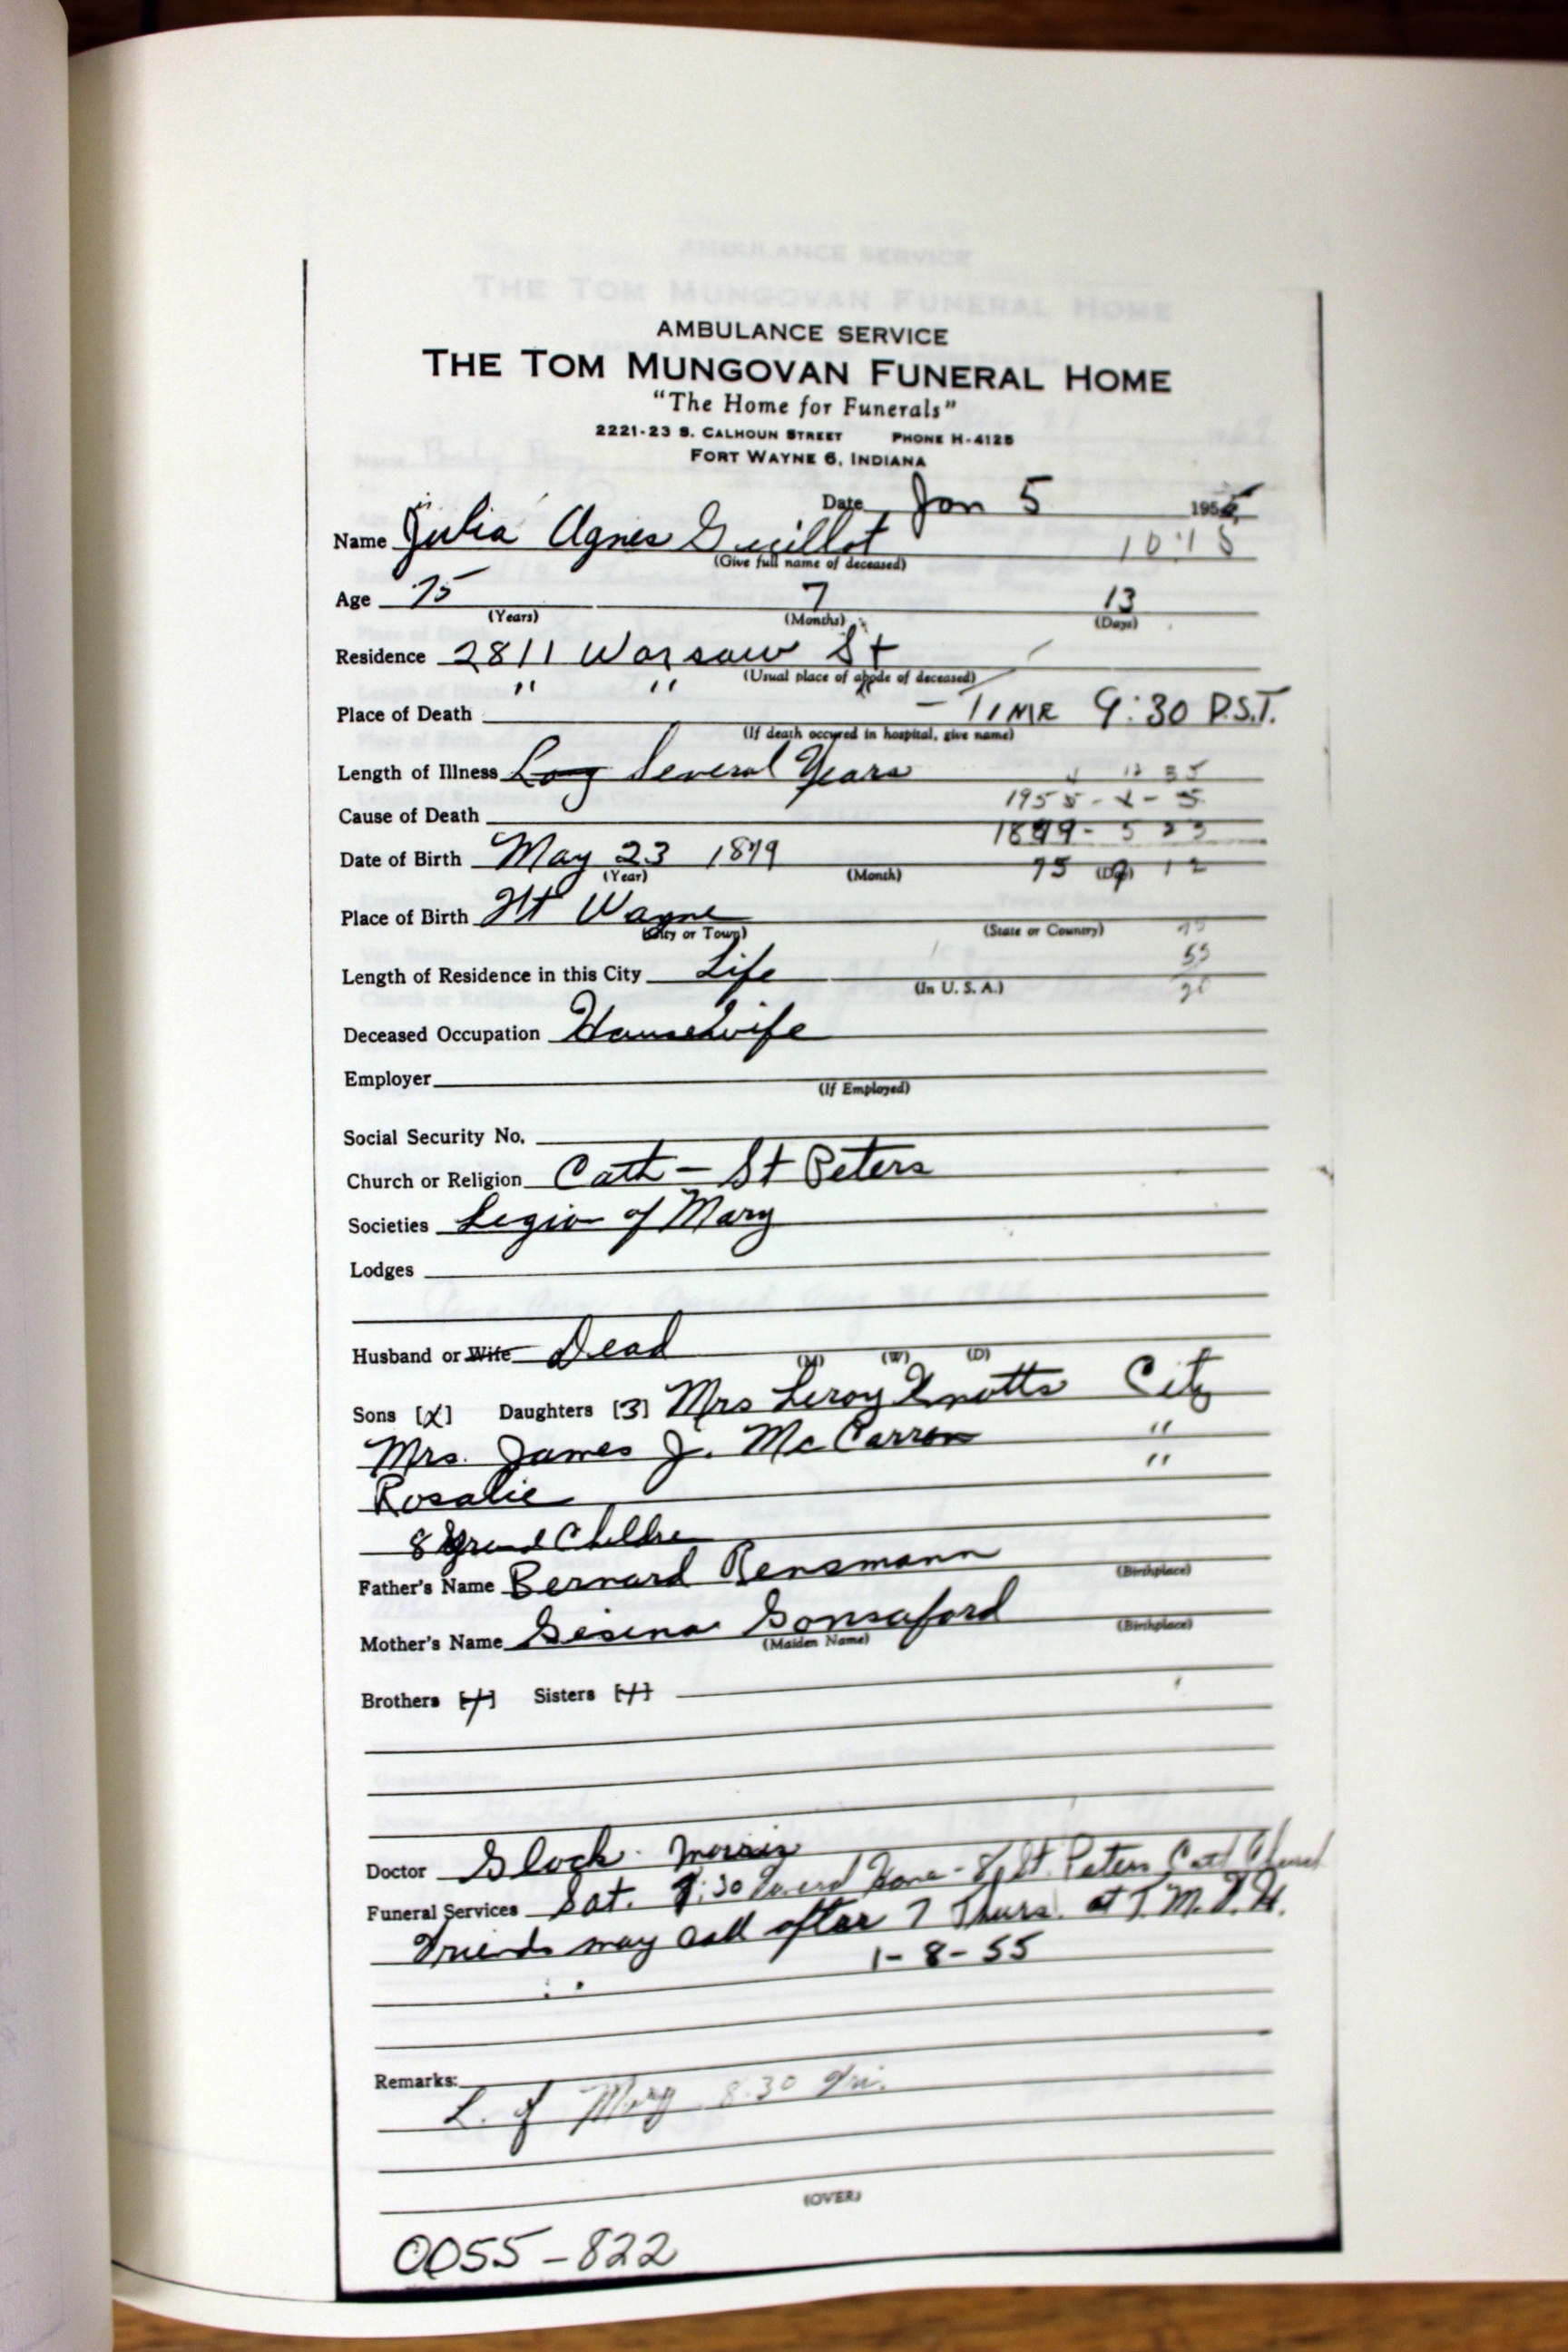 AMBULANCE SERVICE
THE TOM MUNGOVAN FUNERAL HOME
"The Home for Funerals"
2221-23 S. CALHOUN STREET PHONE H-4125
FORT WAYNE 6, INDIANA
Date Jan 5 1955
Name Julia Agnes Guillot 10:15
(Give full name of deceased)
Age 75 7 13
(Years) (Months) (Days)
Residence 2811 Warsaw St
(Usual place of abode of deceased)
Place of Death " " - TIME 9:30 P.S.T.
(If death occured in hospital, give name)
Length of Illness Long Several Years
Cause of Death 1955 - 1 - 5
1879 - 5 23
Date of Birth May 23 1879 75 12
(Year) (Month) (Day)
Place of Birth Ft Wayne
(City or Town) (State or Country)
Length of Residence in this City Life
(In U. S. A.)
Deceased Occupation Housewife
Employer
(If Employed)
Social Security No.
Church or Religion Cath - St Peters
Societies Legion of Mary
Lodges
Husband or Wife Dead
(M) (W) (D)
Sons [X] Daughters [3] Mrs Leroy Knotts City
Mrs. James J. McCarron "
Rosalie "
8 Grand Children
Father's Name Bernard Rensmann
(Birthplace)
Mother's Name Gesina Gonsaford
(Maiden Name) (Birthplace)
Brothers [ ] Sisters [ ]
Doctor Glock - Morris
Funeral Services Sat. 7:30 Funeral Home - 8 St. Peters Cath Church
Friends may call after 7 Thurs. at T.M.F.H.
1-8-55
Remarks:
L. of Mary 8:30 Fri.
(OVER)
0055-822